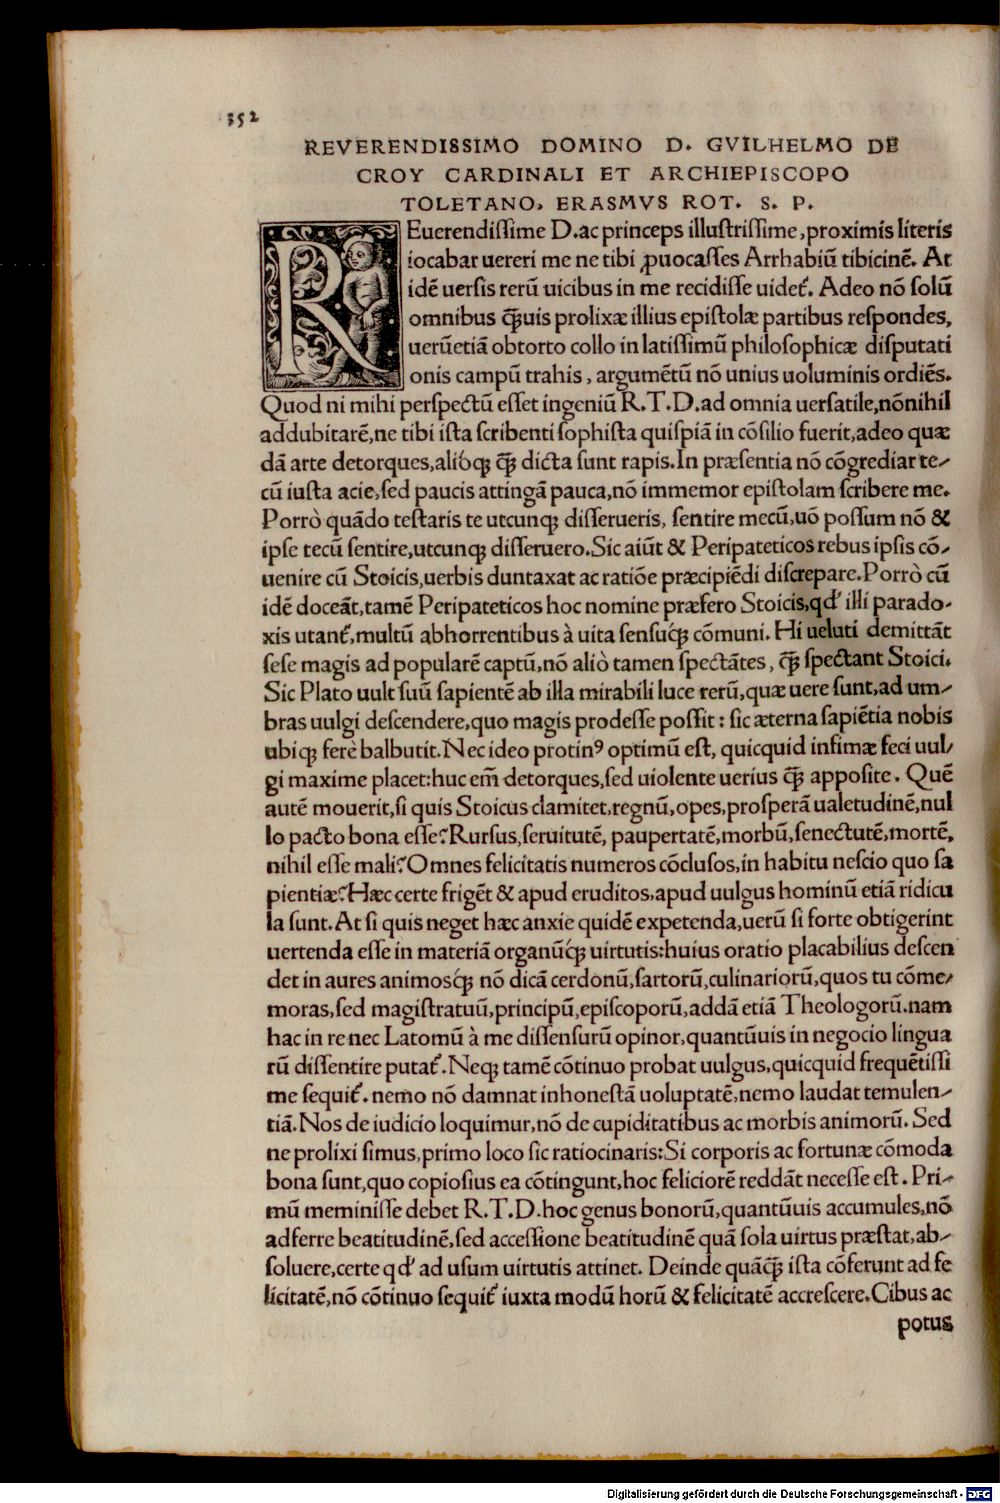 352
REVERENDISSIMO DOMINO D. GVILHELMO DE
CROY CARDINALI ET ARCHIEPISCOPO
TOLETANO, ERASMVS ROT. S. P.
REuerendissime D. ac princeps illustrissime, proximis literis
iocabar uereri me ne tibi ꝓuocasses Arrhabiũ tibicinẽ. At
idẽ uersis rerũ uicibus in me recidisse uidet᷑. Adeo nõ solũ
omnibus q̃uis prolixæ illius epistolæ partibus respondes,
uerũetiã obtorto collo in latissimũ philosophicæ disputati
onis campũ trahis, argumẽtũ nõ unius uoluminis ordiẽs.
Quod ni mihi perspectũ esset ingeniũ R. T. D. ad omnia uersatile, nõnihil
addubitarẽ, ne tibi ista scribenti sophista quispiã in cõsilio fuerit, adeo quæ
dã arte detorques, alióq; q̃ dicta sunt rapis. In præsentia nõ cõgrediar te-
cũ iusta acie, sed paucis attingã pauca, nõ immemor epistolam scribere me.
Porrò quãdo testaris te utcunq; disserueris, sentire mecũ, uõ possum nõ &
ipse tecũ sentire, utcunq; disseruero. Sic aiũt & Peripateticos rebus ipsis cõ-
uenire cũ Stoicis, uerbis duntaxat ac ratiõe præcipiẽdi discrepare. Porrò cũ
idẽ doceãt, tamẽ Peripateticos hoc nomine præfero Stoicis, qd' illi parado-
xis utant᷑, multũ abhorrentibus à uita sensuq́; cõmuni. Hi ueluti demittãt
sese magis ad popularẽ captũ, nõ aliò tamen spectãtes, q̃ spectant Stoici.
Sic Plato uult suũ sapientẽ ab illa mirabili luce rerũ, quæ uere sunt, ad um-
bras uulgi descendere, quo magis prodesse possit: sic æterna sapiẽtia nobis
ubiq; ferè balbutit. Nec ideo protinꝰ optimũ est, quicquid infimæ feci uul-
gi maxime placet: huc em̃ detorques, sed uiolente uerius q̃ apposite. Quẽ
autẽ mouerit, si quis Stoicus clamitet, regnũ, opes, prosperã ualetudinẽ, nul
lo pacto bona esse? Rursus, seruitutẽ, paupertatẽ, morbũ, senectutẽ, mortẽ,
nihil esse mali? Omnes felicitatis numeros cõclusos, in habitu nescio quo sa
pientiæ? Hæc certe frigẽt & apud eruditos, apud uulgus hominũ etiã ridicu
la sunt. At si quis neget hæc anxie quidẽ expetenda, uerũ si forte obtigerint
uertenda esse in materiã organũq́; uirtutis: huius oratio placabilius descen
det in aures animosq́; nõ dicã cerdonũ, sartorũ, culinariorũ, quos tu cõme-
moras, sed magistratuũ, principũ, episcoporũ, addã etiã Theologorũ. nam
hac in re nec Latomũ à me dissensurũ opinor, quantũuis in negocio lingua
rũ dissentire putat᷑. Neq; tamẽ cõtinuo probat uulgus, quicquid frequẽtissi
me sequit᷑. nemo nõ damnat inhonestã uoluptatẽ, nemo laudat temulen-
tiã. Nos de iudicio loquimur, nõ de cupiditatibus ac morbis animorũ. Sed
ne prolixi simus, primo loco sic ratiocinaris: Si corporis ac fortunæ cõmoda
bona sunt, quo copiosius ea cõtingunt, hoc feliciorẽ reddãt necesse est. Pri-
mũ meminisse debet R. T. D. hoc genus bonorũ, quantũuis accumules, nõ
adferre beatitudinẽ, sed accessione beatitudinẽ quã sola uirtus præstat, ab-
soluere, certe qd' ad usum uirtutis attinet. Deinde quãq̃ ista cõferunt ad fe
licitatẽ, nõ cõtinuo sequit᷑ iuxta modũ horũ & felicitatẽ accrescere. Cibus ac
potus
Digitalisierung gefördert durch die Deutsche Forschungsgemeinschaft - DFG